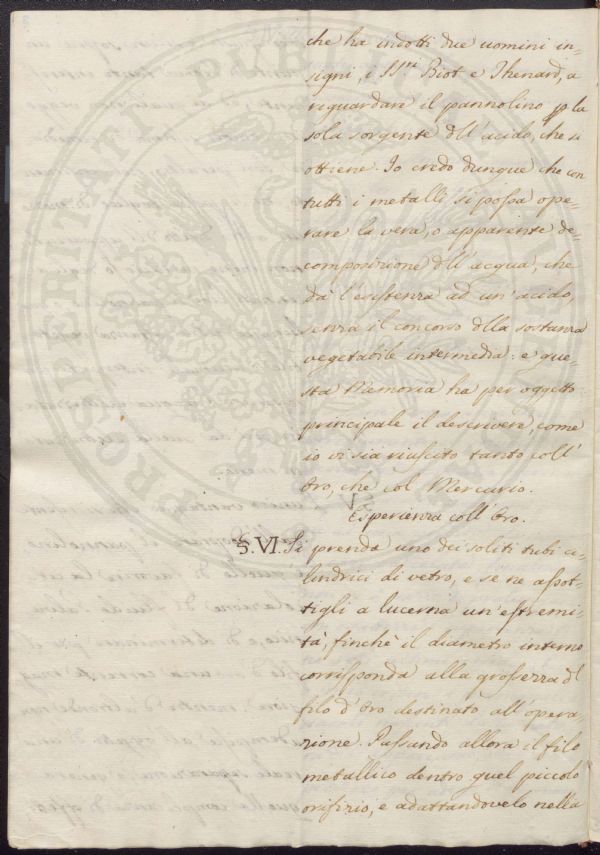 che ha indotti due uomini in-
signi, i SS.ri Biot e Thenard, a
riguardare il pannolino p la
sola sorgente dll' acido, che si
ottiene. Io credo dunque che con
tutti i metalli si possa ope-
rare la vera, o apparente de-
composizione dll' acqua, che
dà l'esistenza ad un' acido,
senza il concorso dlla sostanza
vegetabile intermedia: e que-
sta Memoria ha per oggetto
principale il descrivere, come
io vi sia riuscito tanto coll'
Oro, che col Mercurio.
Esperienza coll' Oro.
§. VI. Si prenda uno dei soliti tubi ci-
lindrici di vetro, e se ne assot-
tigli a lucerna un' estremi-
tà, finchè il diametro interno
corrisponda alla grossezza dl
filo d' Oro destinato all' opera-
zione. Passando allora il filo
metallico dentro quel piccolo
orifizio, e adattandovelo nella
PROSPERITATI PUBLICAE